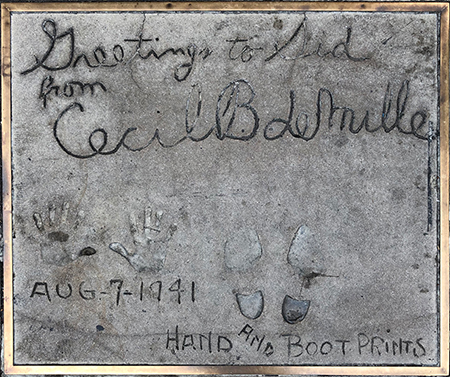 Greetings to Sid
from
Cecil B deMille
AUG-7-1941
HAND AND BOOT PRINTS